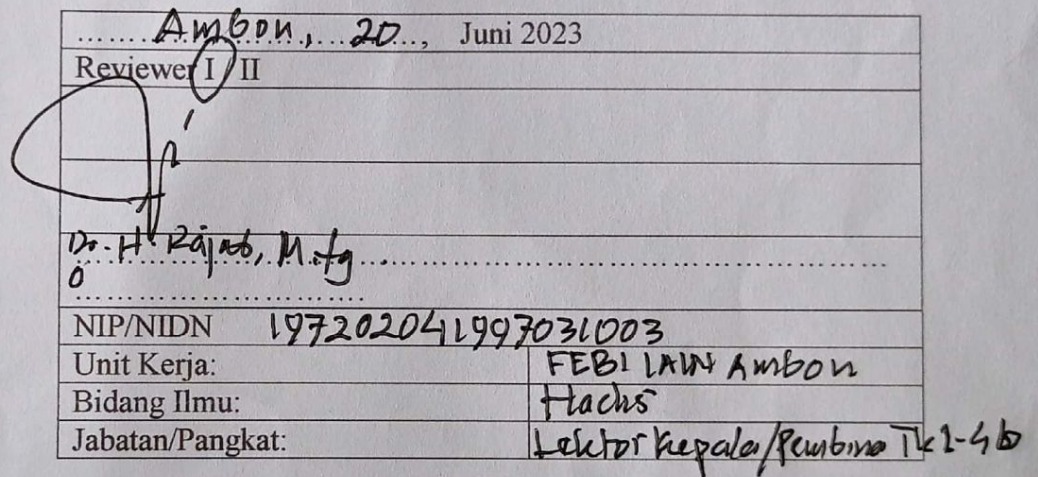 Ambon, 20, Juni 2023
Reviewer I / II
Dr. H. Rajab, M.Ag
NIP/NIDN 197202041997031003
Unit Kerja: FEBI IAIN Ambon
Bidang Ilmu: Hadis
Jabatan/Pangkat: Lektor Kepala/Pembina Tk 1-4b